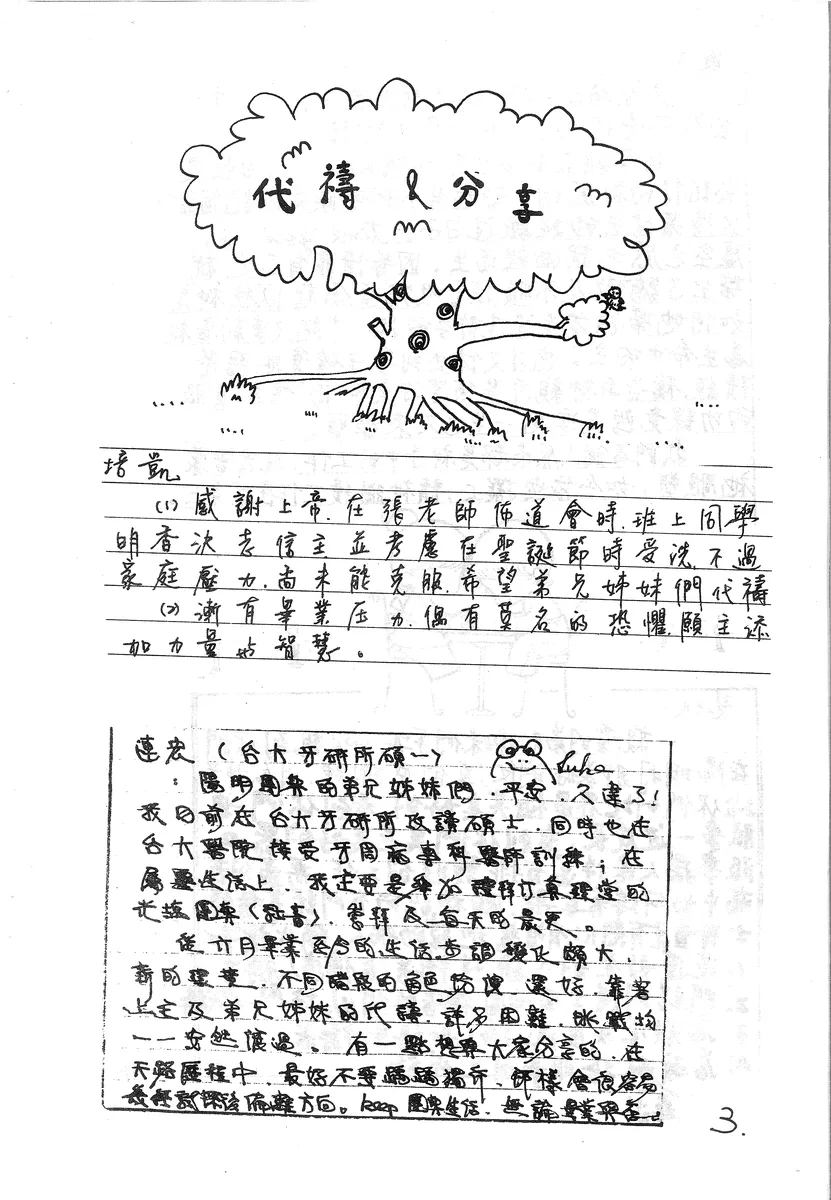 代禱 & 分享
培凱
(1) 感謝上帝.在張老師佈道會時.班上同學
明香決志信主並考慮在聖誕節時受洗.不過
家庭壓力.尚未能克服.希望弟兄姊妹們代禱
(2) 漸有畢業压力.偶有莫名的恐懼.願主添
加力量与智慧。
連宏 (台大牙研所碩一)
: 陽明團契的弟兄姊妹們.平安.久違了!
我目前在台大牙研所攻讀碩士.同時也在
台大醫院接受牙周病專科醫師訓練;在
屬靈生活上.我主要是參加禮拜堂的
團契(社青).崇拜及每天的晨更。
從六月畢業至今的生活步調變化頗大.
新的環境.不同階段的角色.還好.靠著
上主及弟兄姊妹的代禱.許多困難.挑戰均
一一安然度過。有一點想與大家分享的.在
天路歷程中.最好不要踽踽獨行.那樣會很容易
偏離方向。keep 團契生活.無論畢業與否。
3.